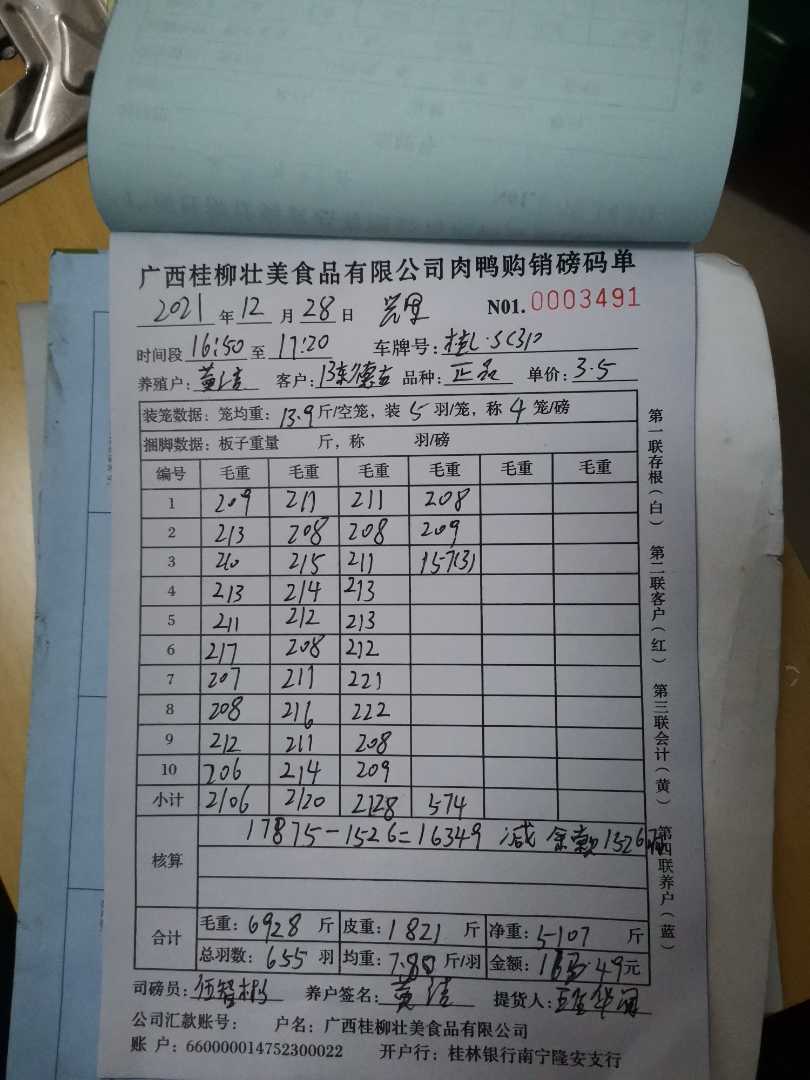 广西桂柳壮美食品有限公司肉鸭购销磅码单
2021 年 12 月 28 日 N01. 0003491
时间段 16:50 至 17:20 车牌号:
养殖户: 黄洁 客户: 品种: 单价: 3.5
装笼数据: 笼均重: 13.9 斤/空笼, 装 5 羽/笼, 称 4 笼/磅
捆脚数据: 板子重量 斤, 称 羽/磅
编号 毛重 毛重 毛重 毛重 毛重 毛重
1 209 211 211 208
2 213 208 208 209
3 210 215 211 157(3)
4 213 214 213
5 211 212 213
6 217 208 212
7 207 211 221
8 208 216 222
9 212 211 208
10 206 214 209
小计 2106 2120 2128 574
核算 17875-1526=16349 减 余款 1526
合计 毛重: 6928 斤 皮重: 1821 斤 净重: 5107 斤
总羽数: 655 羽 均重: 7.80 斤/羽 金额: 元
司磅员: 养户签名: 黄洁 提货人:
公司汇款账号: 户名: 广西桂柳壮美食品有限公司
账 户: 660000014752300022 开户行: 桂林银行南宁隆安支行
第一联存根(白) 第二联客户(红) 第三联会计(黄) 第四联养户(蓝)